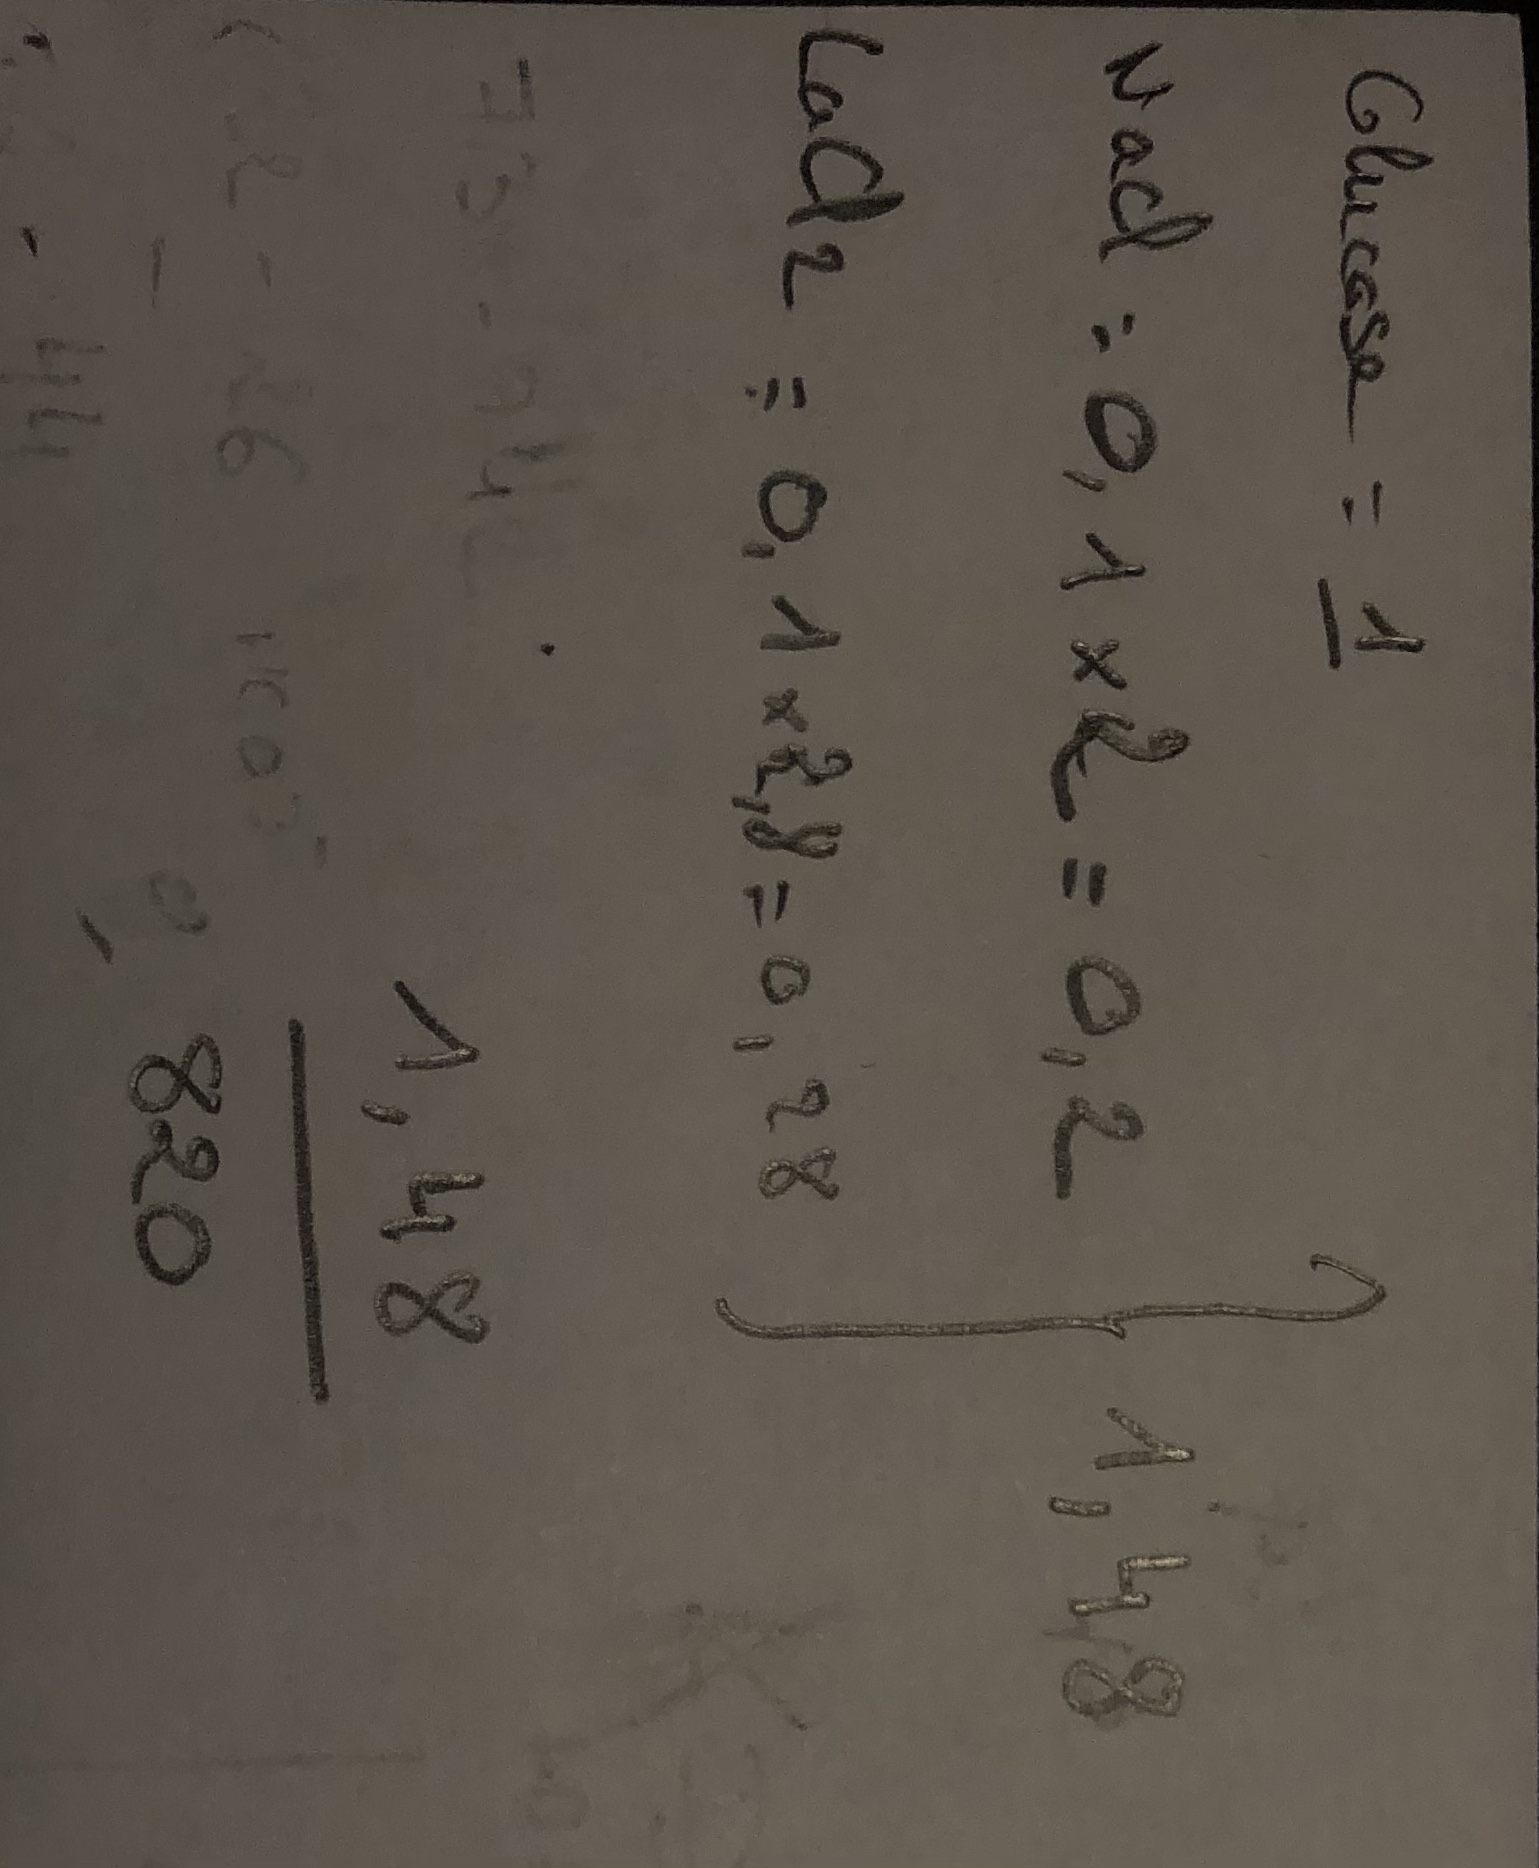 Glucose = 1
Nacl = 0,1 x 2 = 0,2
CaCl2 = 0,1 x 2,8 = 0,28
1,48
1,48
820